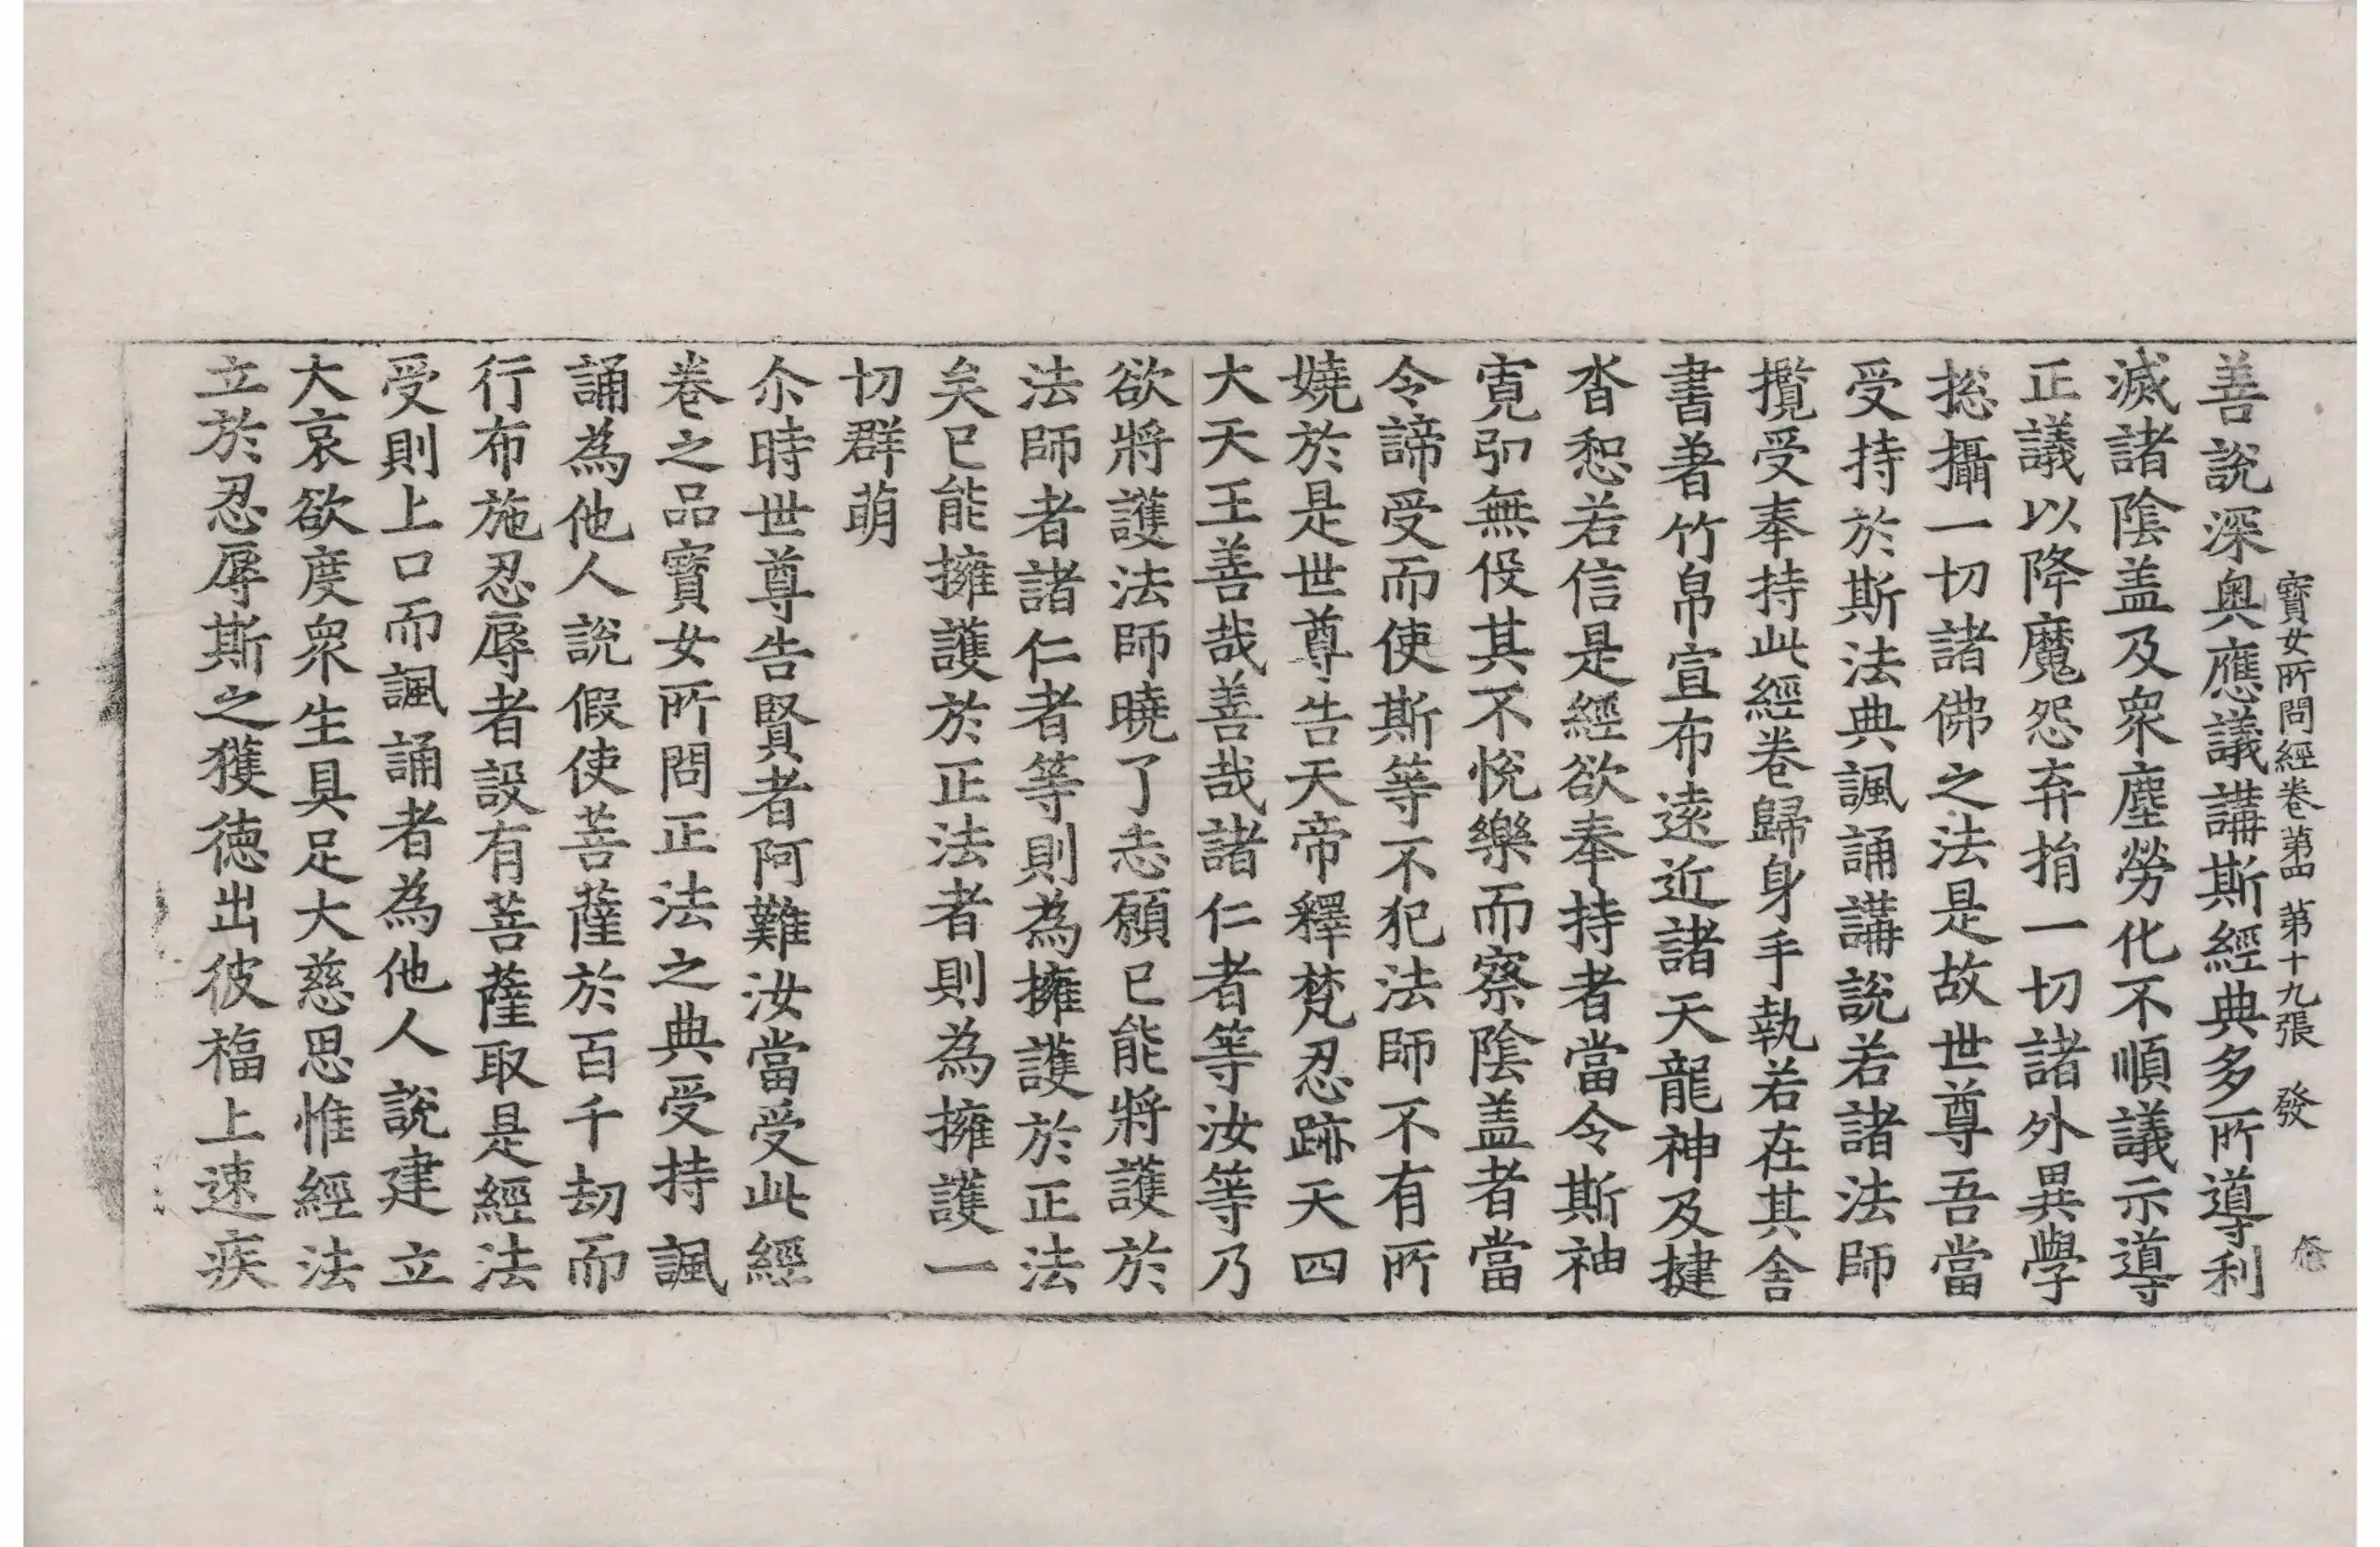 寶女所問經卷第四 第十九張 發
善說深奧應議講斯經典多所導利
滅諸陰盖及衆塵勞化不順議示導
正議以降魔怨弃捐一切諸外異學
捴攝一切諸佛之法是故世尊吾當
受持於斯法典諷誦講說若諸法師
攬受奉持此經卷歸身手執若在其舎
書著竹帛宣布遠近諸天龍神及揵
沓惒若信是經欲奉持者當令斯神
寛弘無伇其不悅樂而察陰盖者當
令諦受而使斯等不犯法師不有所
嬈於是世尊告天帝釋梵忍跡天四
大天王善哉善哉諸仁者等汝等乃
欲將護法師曉了志願已能將護於
法師者諸仁者等則為擁護於正法
矣已能擁護於正法者則為擁護一
切群萌
尒時世尊告賢者阿難汝當受此經
卷之品寶女所問正法之典受持諷
誦為他人說假使菩薩於百千劫而
行布施忍辱者設有菩薩取是經法
受則上口而諷誦者為他人說建立
大哀欲度衆生具足大慈思惟經法
立於忍辱斯之獲德出彼福上速疾